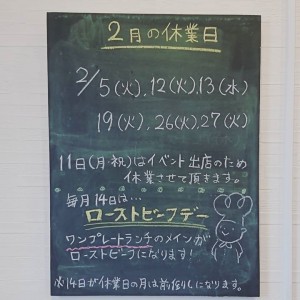 2月の休業日
2/5(火).12(火).13(水)
19(火).26(火).27(火)
11日(月・祝)はイベント出店のため
休業させて頂きます。
毎月14日は…
ローストビーフデー
ワンプレートランチのメインが
ローストビーフになります!
※14日が休業日の月は前倒しになります。